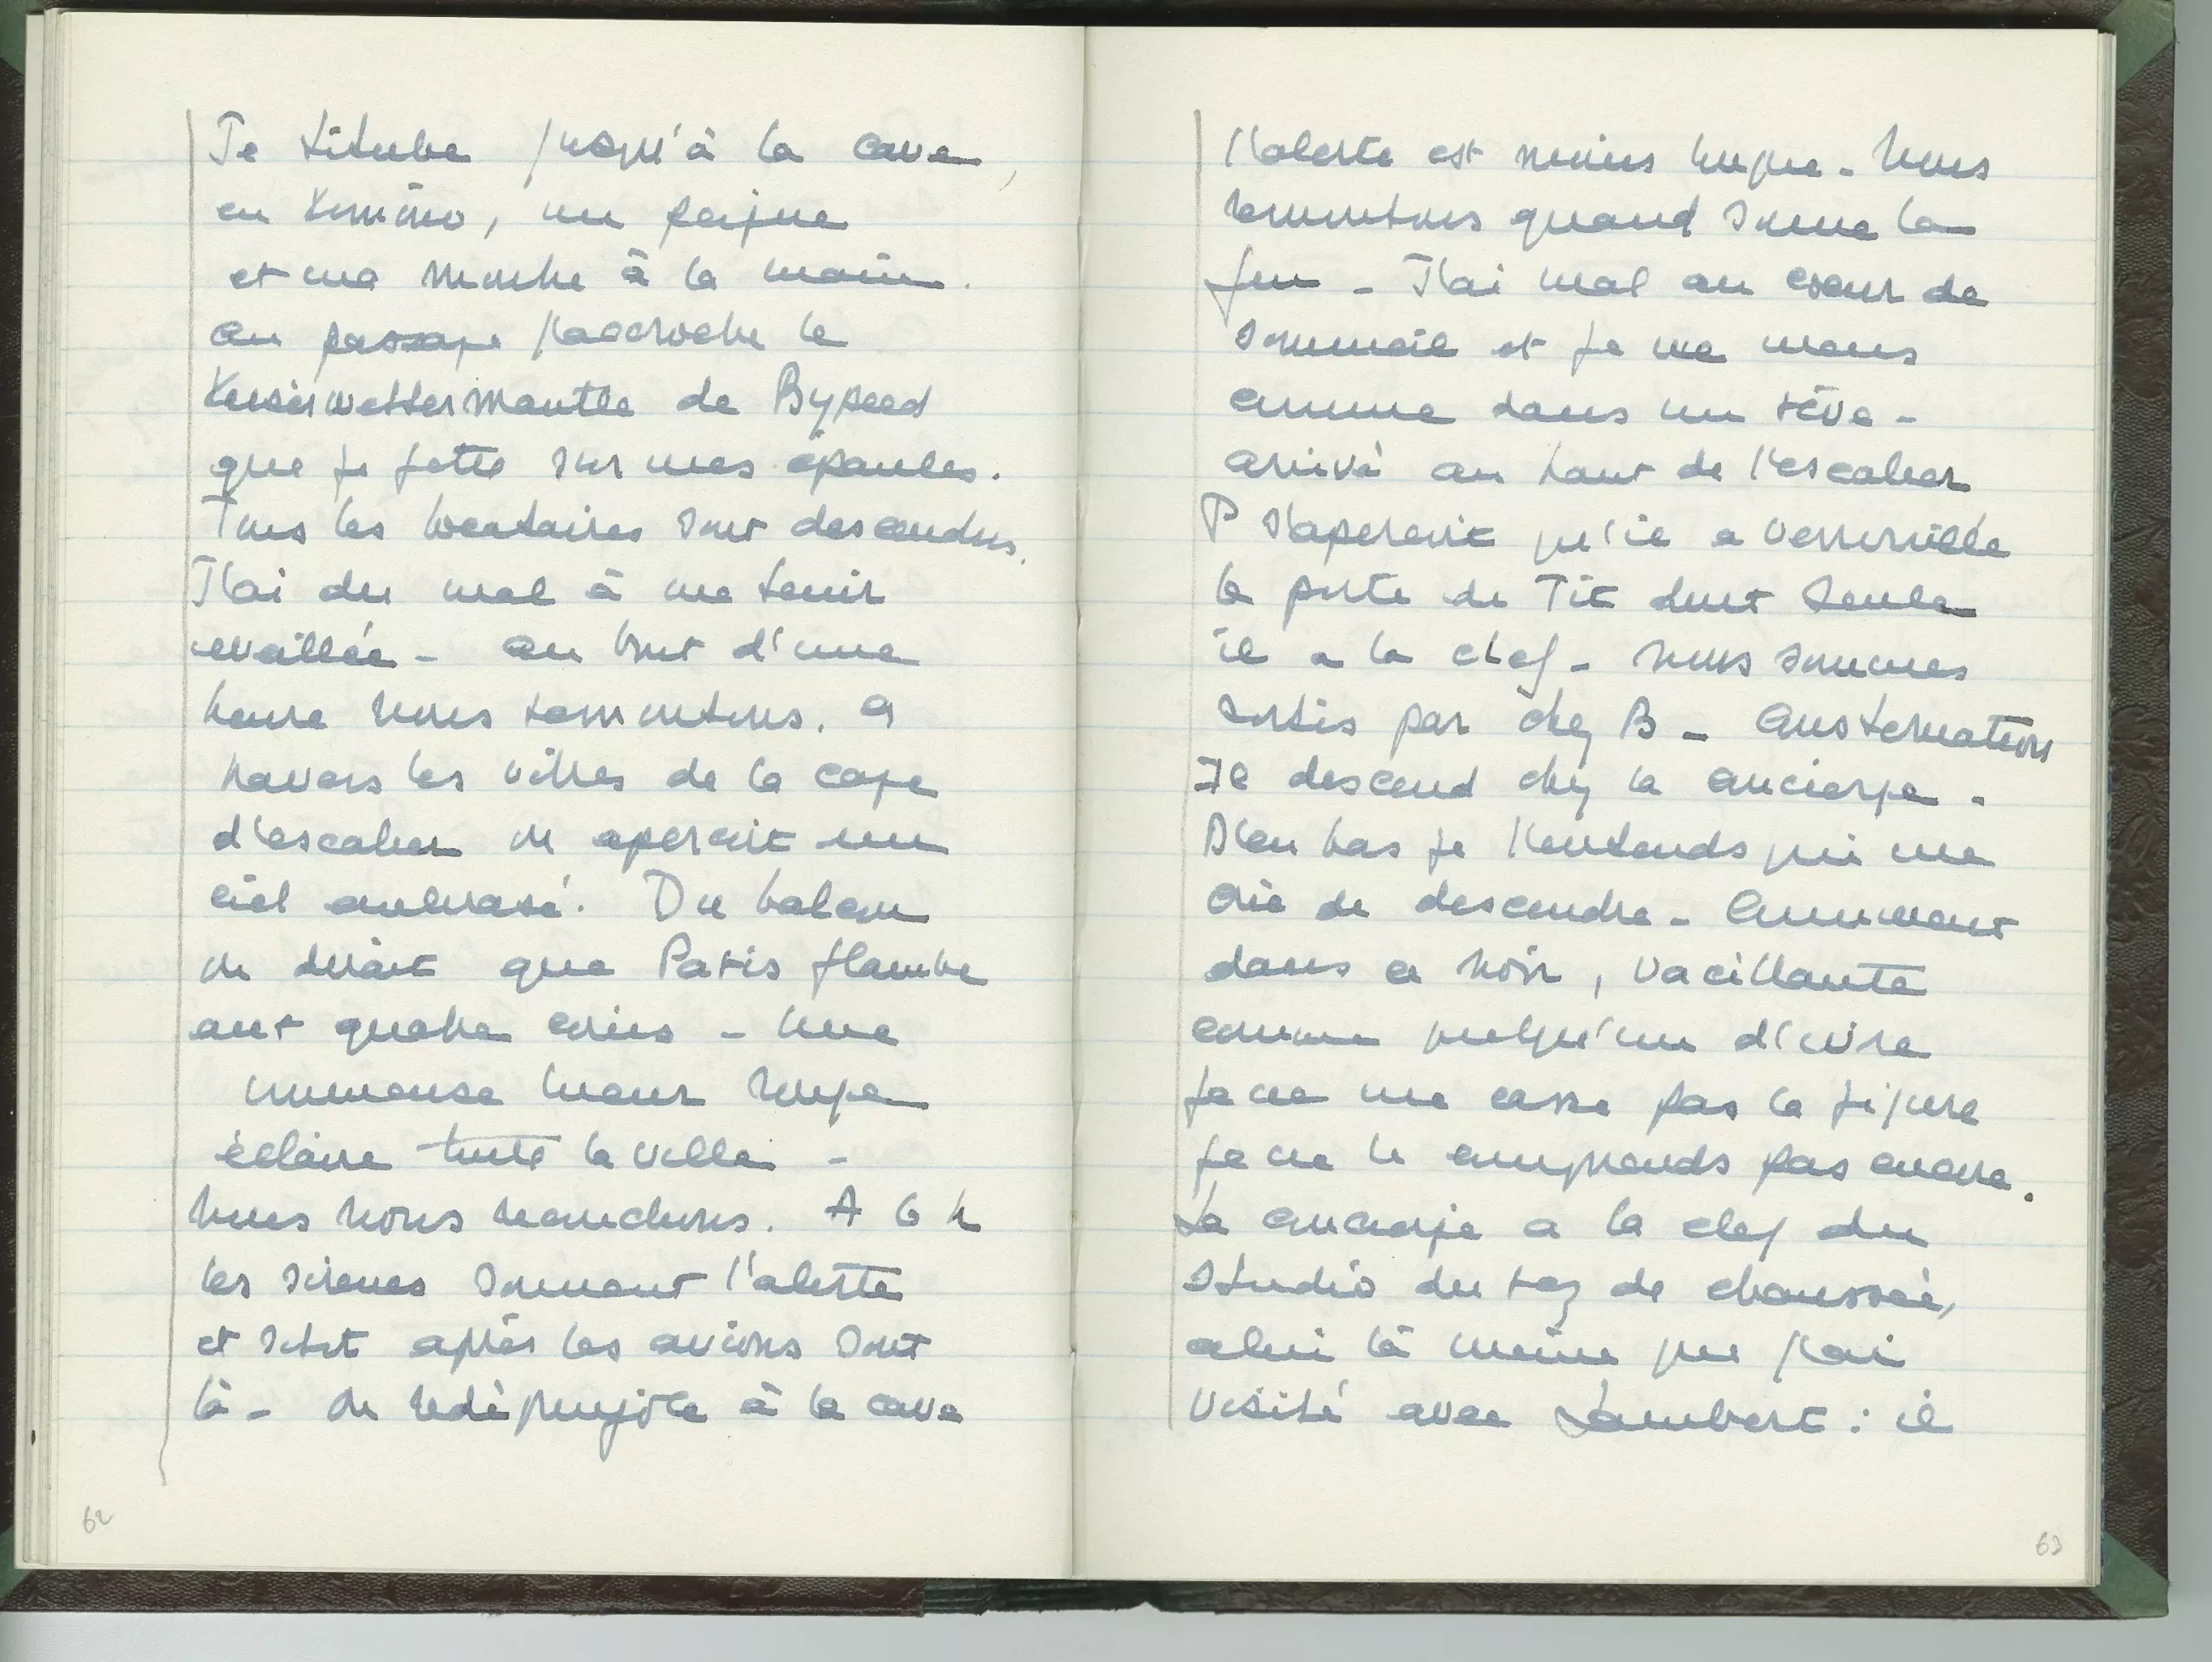 Je titube jusqu'à la cave,
en kimono, un peigne
et ma montre à la main.
au passage j'accroche le
Kaiserwettermantle de Bypeed
que je jette sur mes épaules.
Tous les locataires sont descendus.
J'ai du mal à me tenir
éveillée - au bout d'une
heure nous remontons. a
travers les vitres de la cage
d'escalier on aperçoit un
ciel embrasé. Du balcon
on dirait que Paris flambe
aux quatre coins - Une
immense lueur rouge
éclaire toute la ville -
nous nous recouchons. A 6 h
les sirenes sonnent l'alerte
et sitot après les avions sont
là - on redégringole à la cave
62
l'alerte est moins longue - nous
remontons quand sonne la
fin - J'ai mal au coeur de
sommeil et je me meus
comme dans un rêve -
arrivé au haut de l'escalier
P s'aperçoit qu'il a verrouillé
la porte de Tit dont seule
il a la clef - nous sommes
sortis par chez B - Consternation
Il descend chez la concierge -
D'en bas je l'entends qui me
crie de descendre - Comment
dans ce noir, vacillante
comme quelqu'un d'ivre
je ne me casse pas la figure
je ne le comprends pas encore.
La concierge a la clef du
studio du rez de chaussée,
celui là même que j'ai
visité avec Lambert : il
63